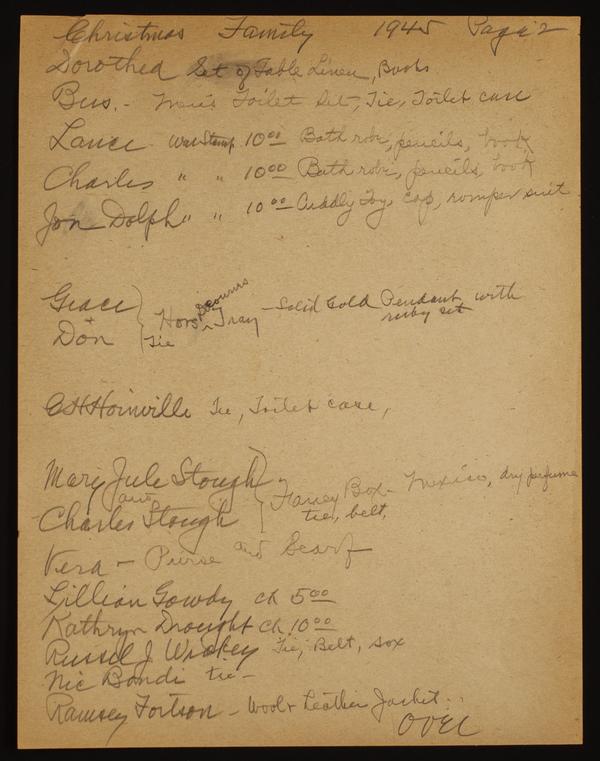 Christmas Family 1945 Page 2
Dorothea Set of Table Linen, Books
Bus. - Men's Toilet Set, Tie, Toilet case
Lance War Stamp 10 00 Bath robe, pencils, book
Charles " " 10 00 Bath robe, pencils, book
Jon Dolph " " 10 00 Cuddly Toy, cap, romper suit
Grace } Hors Deouvres Tray - Solid Gold Pendant with
ruby set
Don Tie
E H Hoinville Tie, Toilet case,
Mary Jule Stough } Fancy Box - Mexico, dry perfume
and
Charles Stough ties, belt,
Vera - Purse and Scarf
Lillian Gowdy ck 5 00
Kathryn Drought ck 10 00
Russel J Tie, Belt, sox
Nic Bondi tie -
Ramsey Fortson - Wool & Leather Jacket
OVER